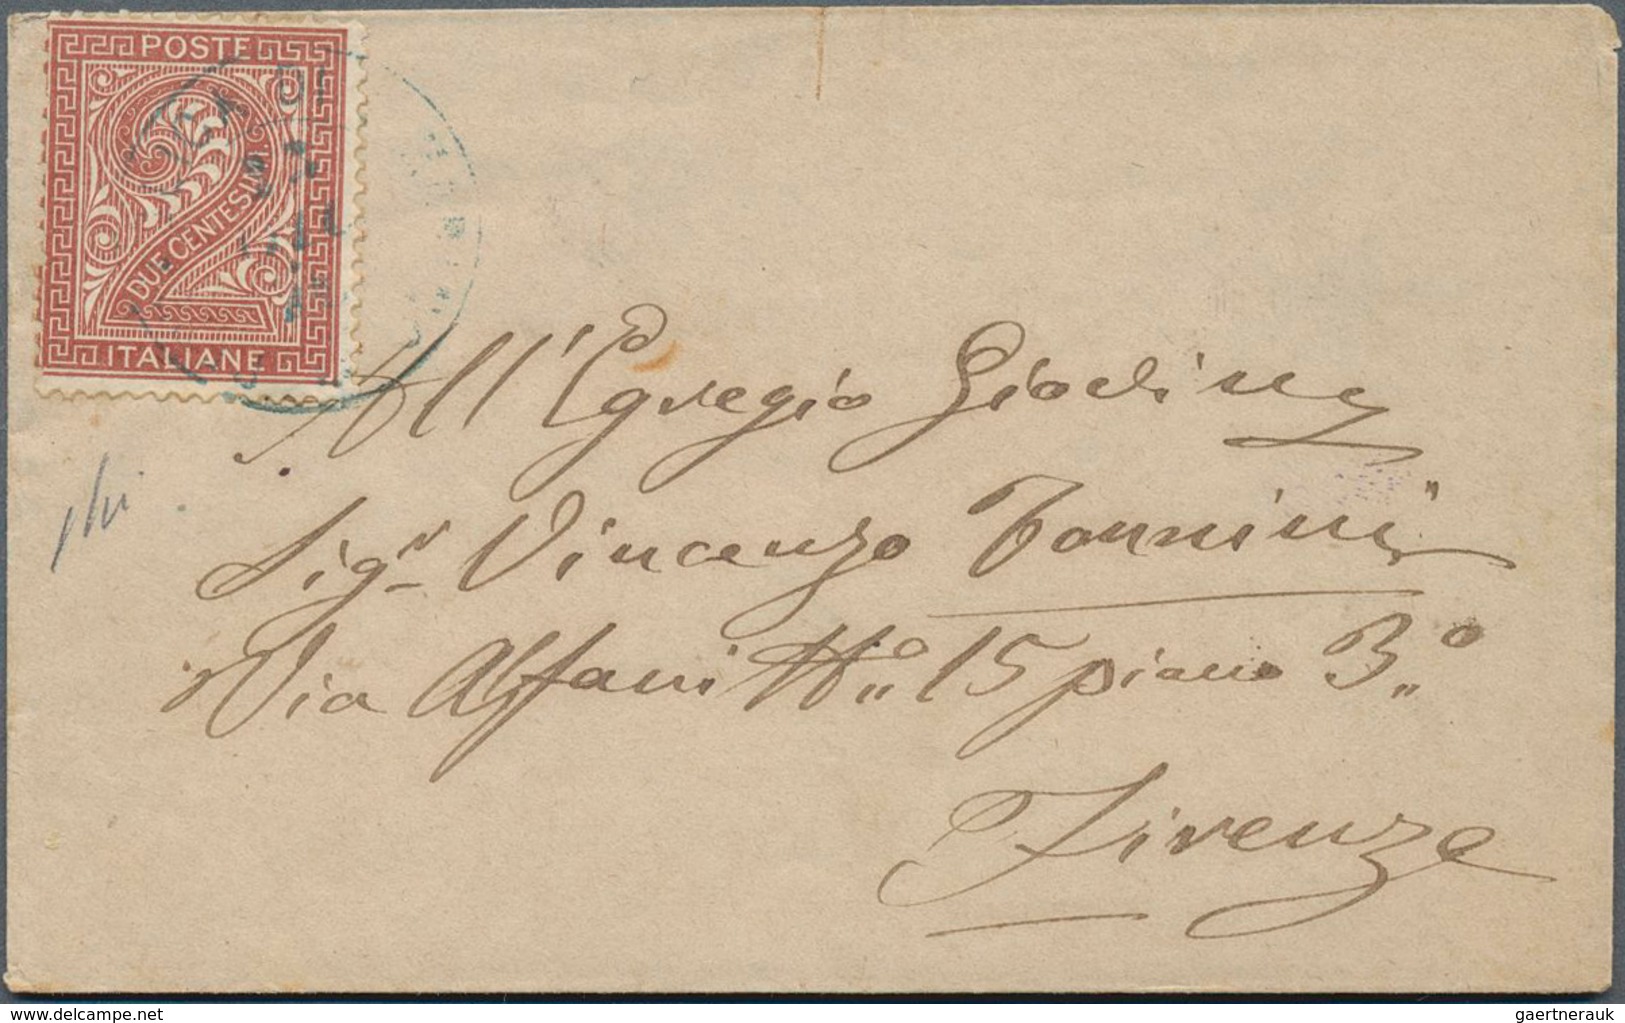 POSTE
DUE CENTESIMI
2
ITALIANE
All'Egregio Giovine
Sigr. Vincenzo Vannini
Via Alfani No. 15 piano 3.o
Firenze
delcampe.net
gaertnerauk